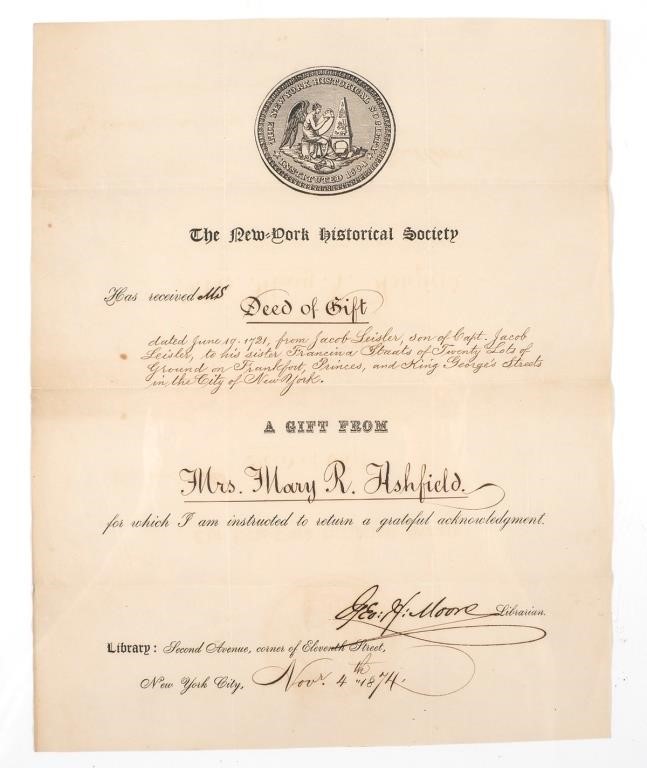 THE NEW-YORK HISTORICAL SOCIETY
INSTITUTED 1804
The New=York Historical Society
Has received MS
Deed of Gift
dated June 19. 1721, from Jacob Leisler, son of Capt. Jacob
Leisler, to his sister Francina Staats of Twenty Lots of
Ground on Frankfort, Princes, and King George's Streets
in the City of New York.
A GIFT FROM
Mrs. Mary R. Ashfield.
for which I am instructed to return a grateful acknowledgment.
Geo: H: Moore Librarian.
Library: Second Avenue, corner of Eleventh Street,
New York City, Novr. 4th 1874.